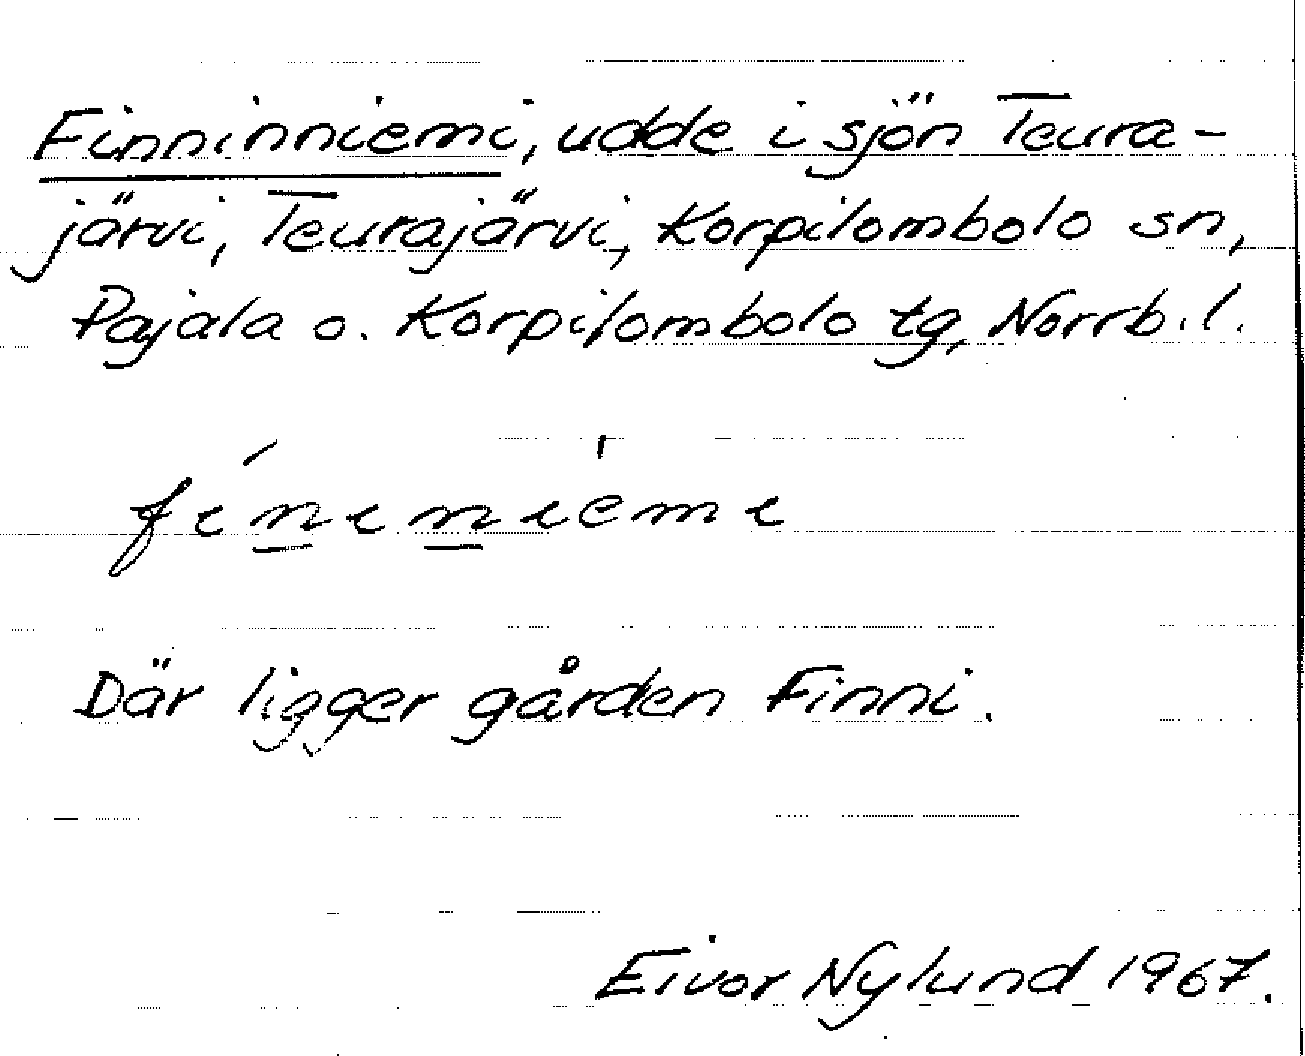 Finninniemi, udde i sjön Teura-
järvi, Teurajärvi, Korpilombolo sn,
Pajala o. Korpilombolo tg, Norrb.l.
fi´n̲in̲iemi
Där ligger gården Finni.
Eivor Nylund 1967.